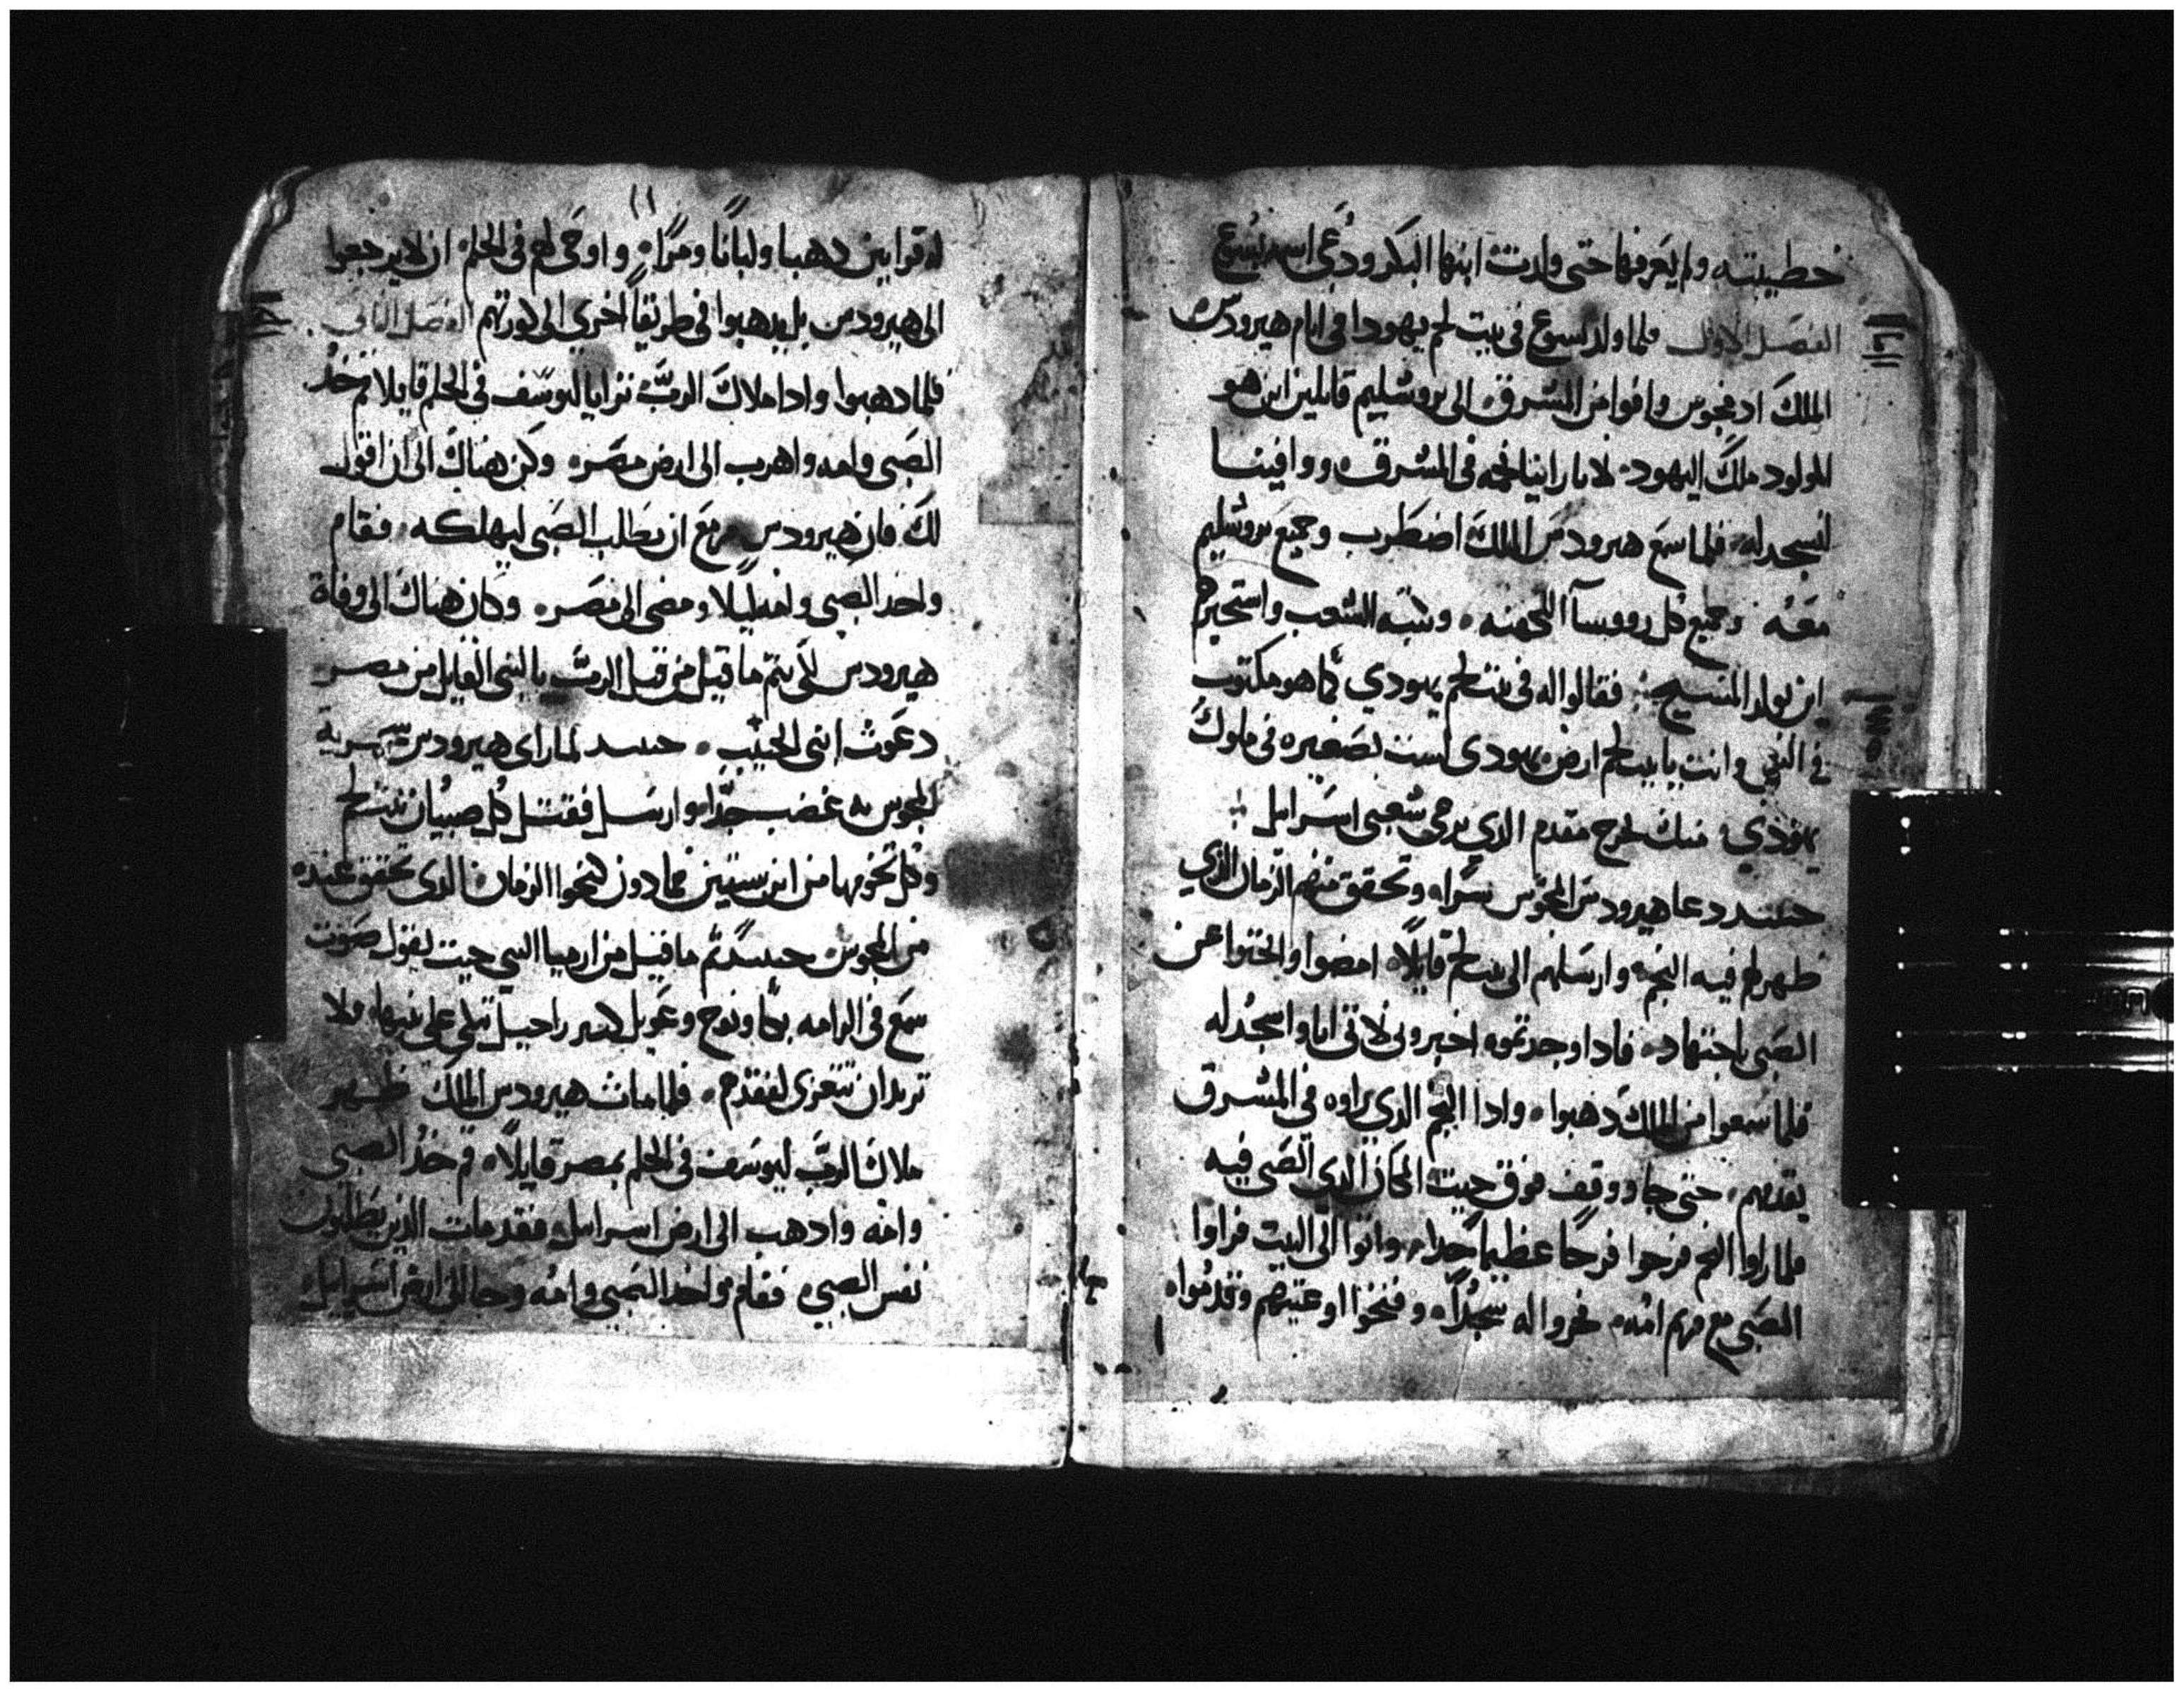 خطيبته ولم يعرفها حتى ولدت ابنها البكر ودعى اسمه يسوع
الفصل الاول فلما ولد يسوع في بيت لحم يهودا في ايام هيرودس
الملك اد مجوس وافوا من المشرق الى يروشليم قايلين اين هو
المولود ملك اليهود لاننا راينا نجمه في المشرق ووافينا
لنسجد له فلما سمع هيرودس الملك اضطرب وجميع يروشليم
معه وجميع كل رووسآ الكهنه وكتبه الشعب واستخبرهم
اين يولد المسيح فقالوا له في بيت لحم يهودي كما هو مكتوب
في النبي وانت يا بيت لحم ارض يهودى لست بصغيره في ملوك
يهودي منك يخرج مقدم الدي يرعى شعبي اسرايل
حينيد دعا هيرودس المجوس سراه وتحقق منهم الزمان الدي
ظهر لهم فيه النجم وارسلهم الى بيت لحم قايلاً امضوا وابحتوا عن
الصبي باجتهاد فادا وجدتموه اخبروني لاتي انا واسجد له
فلما سمعوا من الملك دهبوا وادا النجم الدي راوه في المشرق
يقدمهم حتى جا ووقف فوق حيت المكان الدي الصبي فيه
فلما راوا النجم فرحوا فرحا عظيما جدا واتوا الى البيت فراوا
الصبي مع مريم امه فخروا له سجداً وفتحوا اوعيتهم وقدموا
١١
له قرابين دهبا ولبانا ومرا واوحى لهم في الحلم ان لا يرجعوا
الى هيرودس بل يدهبوا في طريقاً اخري الى كورتهم الفصل التاني
فلما دهبوا وادا ملاك الرب ترايا ليوسف في الحلم قايلا قم خد
الصبي وامه واهرب الى ارض مصر وكن هناك الى ان اقول
لك فان هيرودس مزمع ان يطلب الصبي ليهلكه فقام
واخد الصبي وامه ليلا ومضى الى مصر وكان هناك الى وفاة
هيرودس لكي يتم ما قيل من قبل الرب بالنبي القايل من مصر
دعوت ابني الحبيب حينيد لما راى هيرودس سخرية
المجوس به غضب جدا وارسل فقتل كل صبيان بيت لحم
وكل تخومها من ابن سنتين فما دون كنحوا الزمان الدى تحقق عنده
من المجوس حينيد تم ما قيل من ارميا النبي حيت يقول صوت
سمع في الرامه بكا ونوح وعويل كتير راحيل تبكي على بنيها ولا
تريد ان تتعزى لفقدهم فلما مات هيرودس الملك ظهر
ملاك الرب ليوسف في الحلم بمصر قايلاً قم خد الصبي
وامه وادهب الى ارض اسرايل فقد مات الدين يطلبون
نفس الصبي فقام واخد الصبي وامه وجا الى ارض اسرايل